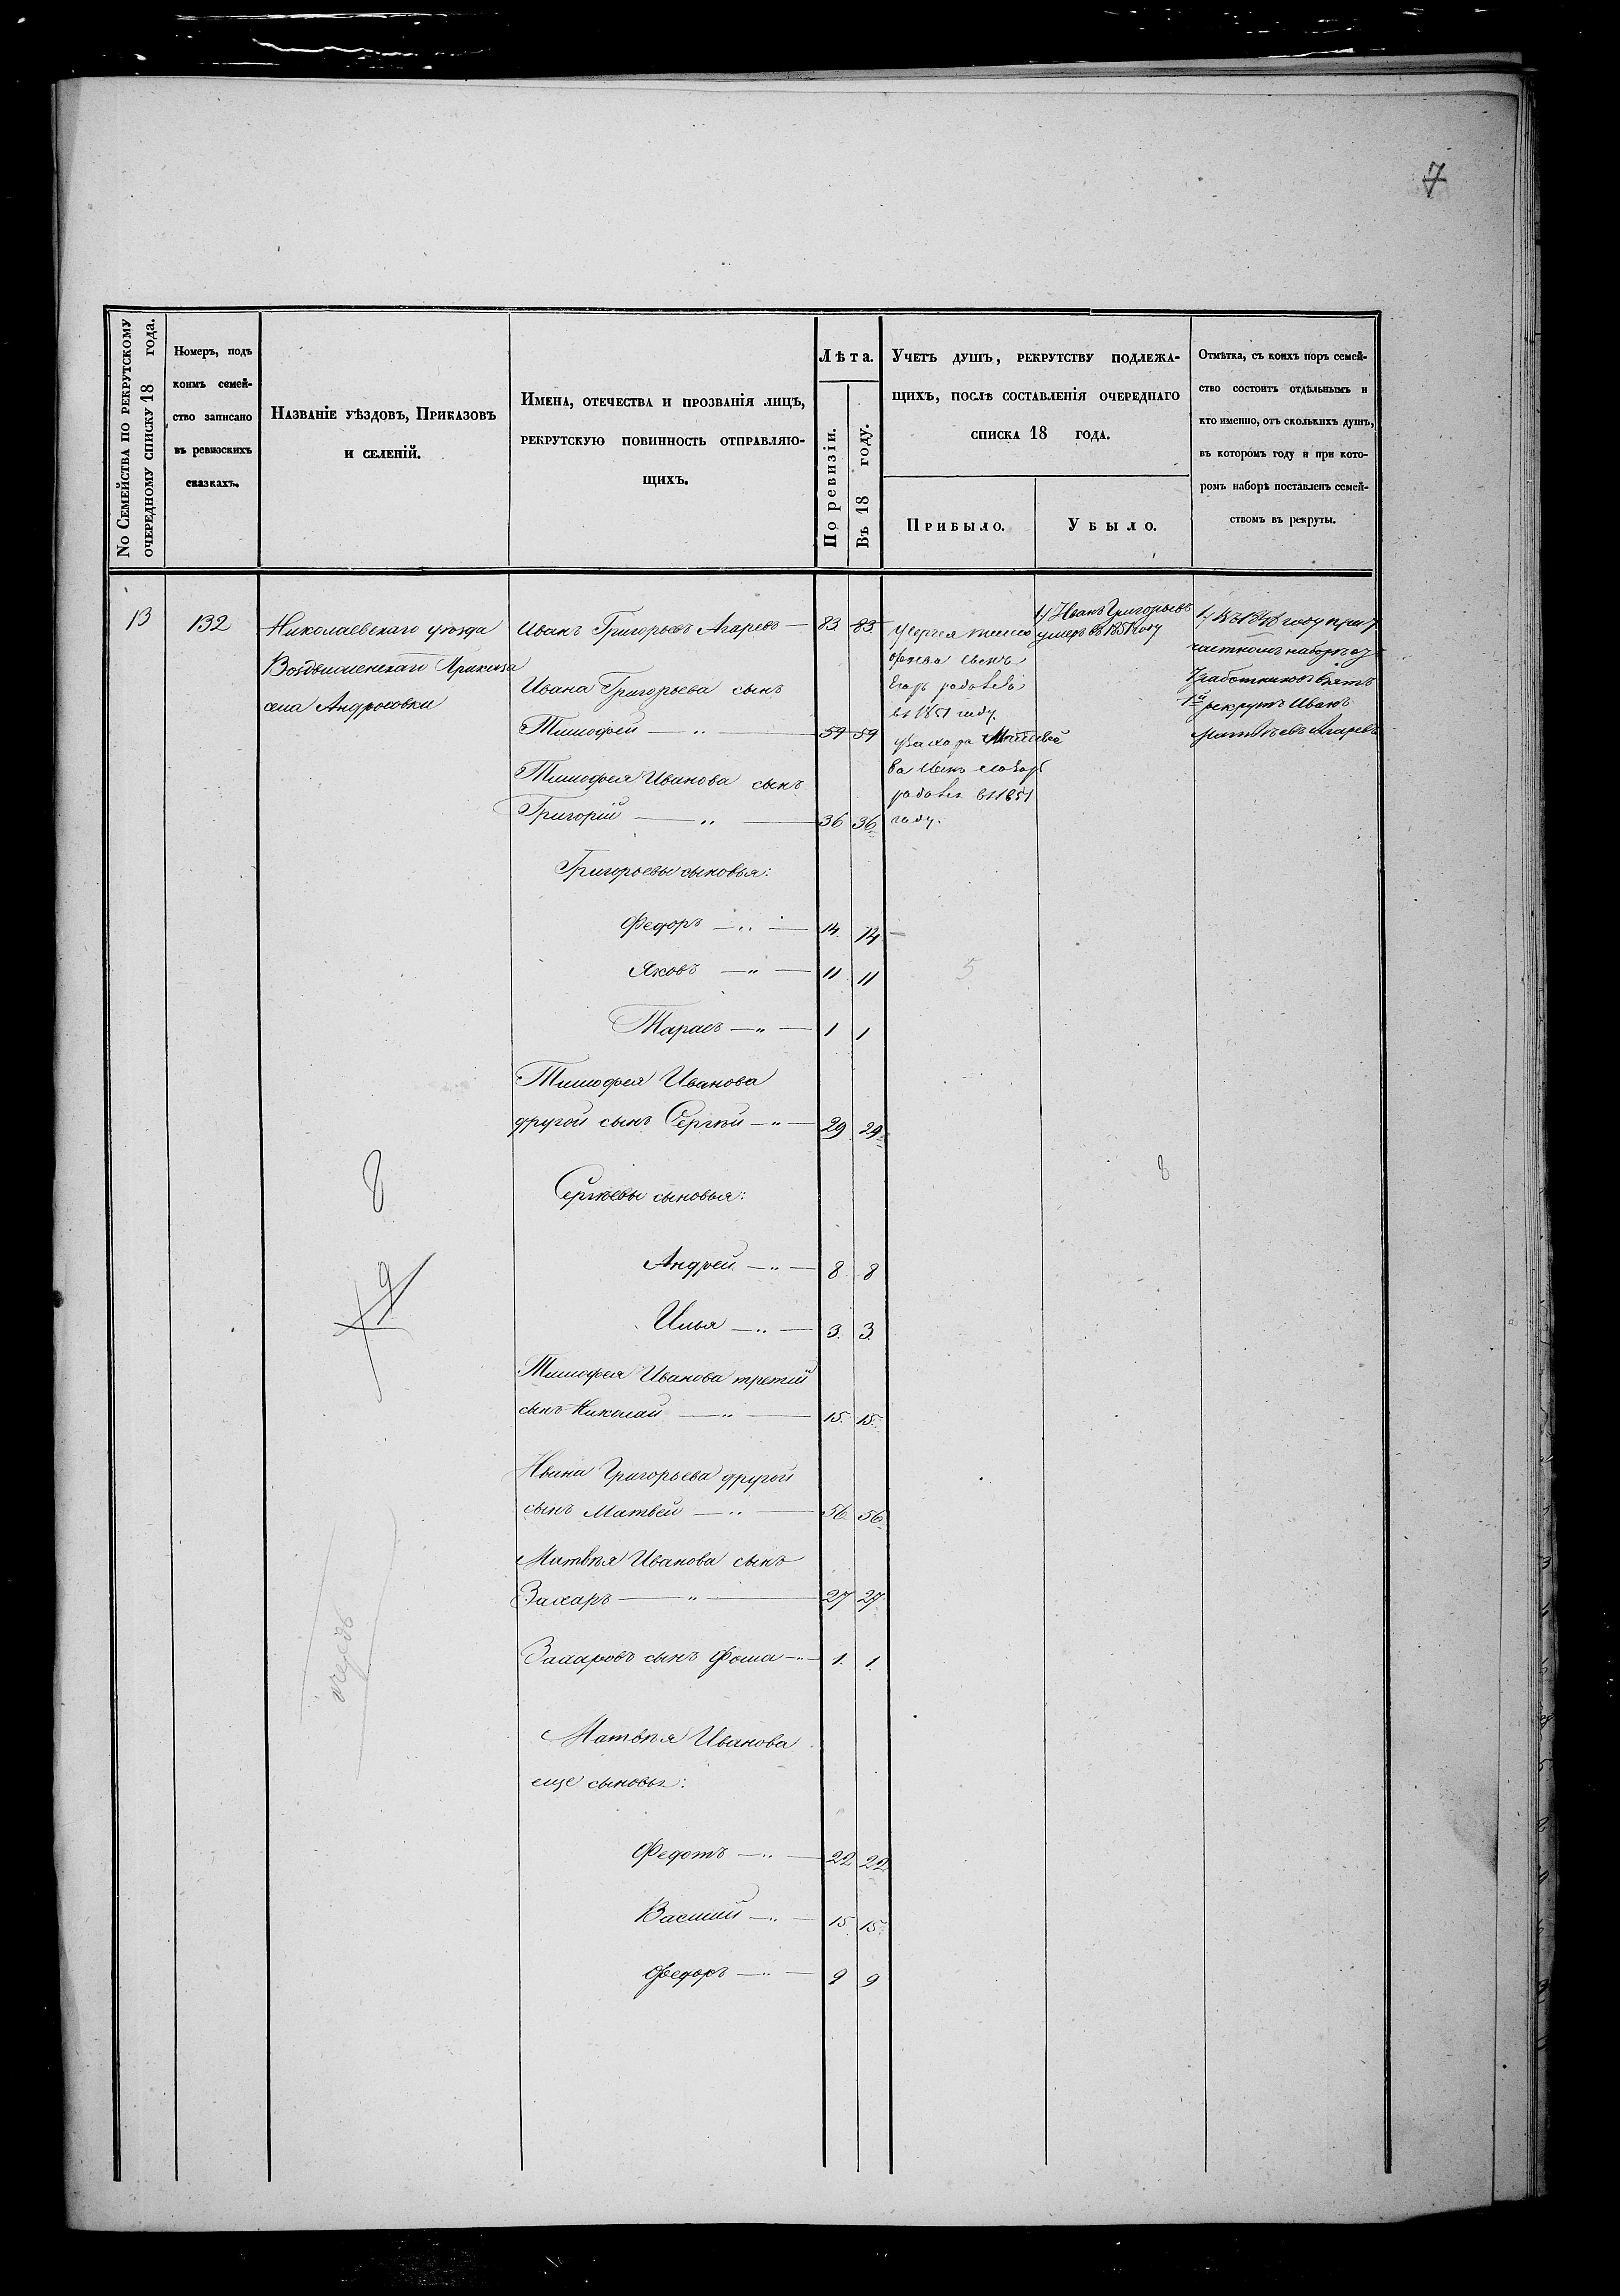 7
No Семейства по рекрутскому
очередному списку 18 года.
Номеръ, подъ
коимъ семей-
ство записано
въ ревизскихъ
сказкахъ.
Названіе уѣздовъ, Приказовъ
и селеній.
Имена, отечества и прозванія лицъ,
рекрутскую повинность отправляю-
щихъ.
Лѣта.
По ревизіи.
Въ 18 году.
Учетъ душъ, рекрутству подлежа-
щихъ, послѣ составленія очереднаго
списка 18 года.
Прибыло.
Убыло.
Отмѣтка, съ коихъ поръ семей-
ство состоитъ отдѣльнымъ и
кто именно, отъ сколькихъ душъ,
въ которомъ году и при кото-
ромъ наборѣ поставленъ семей-
ствомъ въ рекруты.
13
132
Николаевскаго уѣзда
Воздвиженскаго Приказа
села Андросовки
Иванъ Григорьевъ Агаревъ — 83 83
Ивана Григорьева сынъ
Тимофей — " — 59 59
Тимофея Иванова сынъ
Григорій — " — 36 36
Григорьевы сыновья:
Федоръ — " — 14 14
Яковъ — " — 11 11
Тарасъ — " — 1 1
Тимофея Иванова
другой сынъ Сергѣй — " — 29 29
Сергѣевы сыновья:
Андрей — " — 8 8
Илья — " — 3 3
Тимофея Иванова третій
сынъ Николай — " — 15 15
Ивана Григорьева другой
сынъ Матвей — " — 56 56
Матвѣя Иванова сынъ
Захаръ — " — 27 27
Захаровъ сынъ Фома — " — 1 1
Матвѣя Иванова
еще сыновья:
Федотъ — " — 22 22
Василій — " — 15 15
Федоръ — " — 9 9
У Сергея Тимо
феева сынъ
Егоръ родился
въ 1851 году.
У Захара Матвее
ва сынъ
родился въ 1851
году.
1) Иванъ Григорьевъ
умеръ въ 1851 году
1) Въ 1848 году при 7
частномъ наборѣ изъ
7 работниковъ взятъ
1й рекрутъ Иванъ
Матвѣевъ Агаревъ
5
8
8
9
очередь